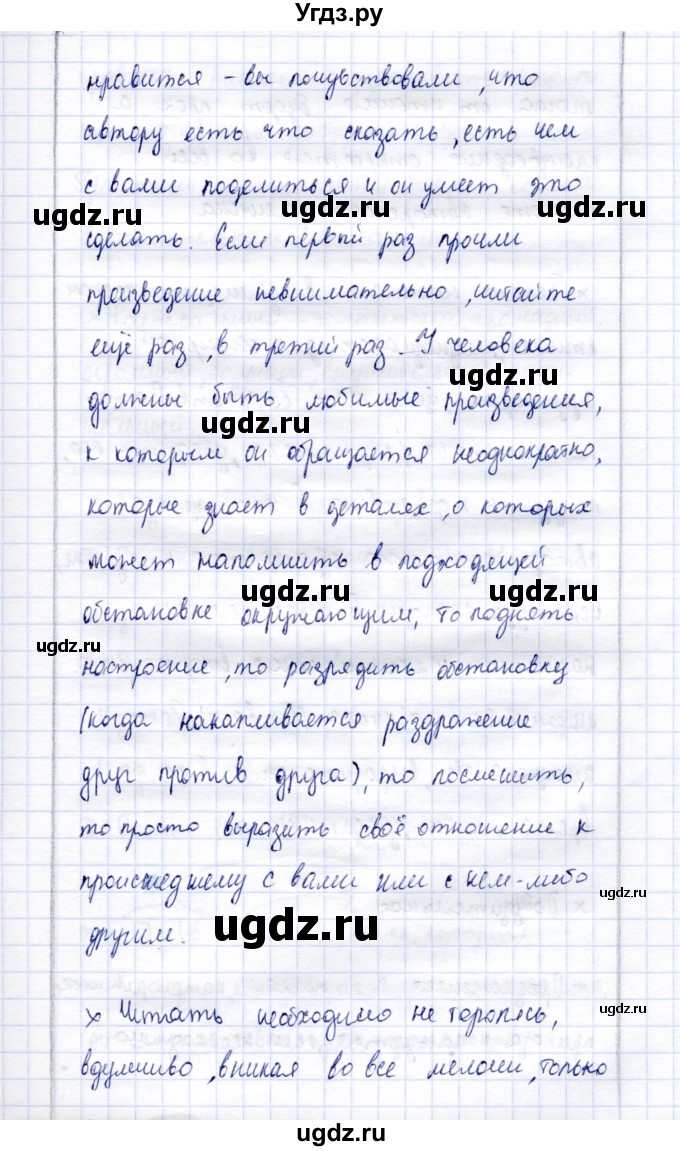 Угдз.ру
нравится - вы почувствовали, что
автору есть что сказать, есть чем
с вами поделиться и он умеет это
сделать. Если первый раз прочли
произведение невнимательно, читайте
ещё раз, в третий раз. У человека
должны быть любимые произведения,
к которым он обращается неоднократно,
которые знает в деталях, о которых
может напомнить в подходящей
обстановке окружающим, то поднять
настроение, то разрядить обстановку
(когда накапливается раздражение
друг против друга), то посмешить,
то просто выразить своё отношение к
происшедшему с вами или с кем-либо
другим.
x Читать необходимо не торопясь,
вдумчиво, вникая во все мелочи, только
ugdz.ru
ugdz.ru
ugdz.ru
ugdz.ru
ugdz.ru
ugdz.ru
ugdz.ru
ugdz.ru
ugdz.ru
ugdz.ru
ugdz.ru
ugdz.ru